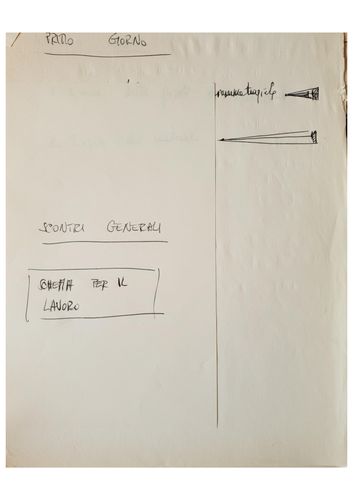 PRIMO GIORNO
SCONTRI GENERALI
SCHEMA PER IL
LAVORO